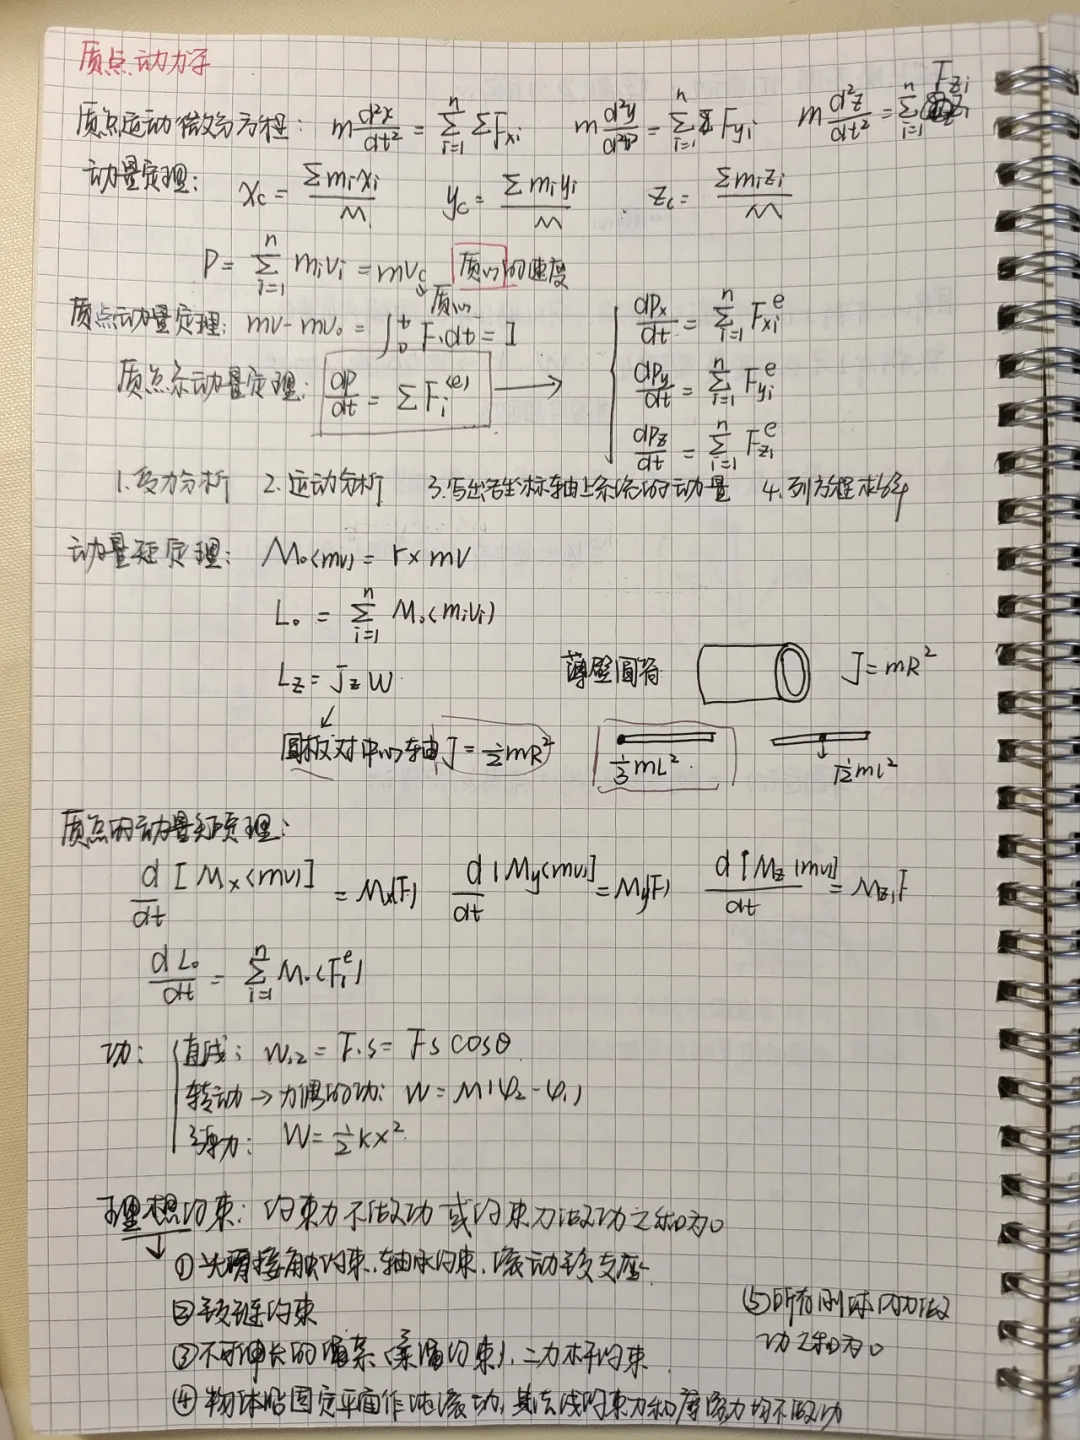 质点动力学
质点运动微分方程: m d²x/dt² = Σ_{i=1}^{n} ΣF_{xi} m d²y/d²t² = Σ_{i=1}^{n} F_{yi} m d²z/dt² = Σ_{i=1}^{n} F_{zi}
动量定理: x_c = Σm_i x_i / M y_c = Σm_i y_i / M z_c = Σm_i z_i / M
P = Σ_{i=1}^{n} m_i v_i = mv_c 质心的速度
质心
质点动量定理: mv - mv₀ = ∫₀^t F·dt = I
质点系动量定理: dp/dt = ΣF_i^{(e)} →
dp_x/dt = Σ_{i=1}^{n} F_{xi}^e
dp_y/dt = Σ_{i=1}^{n} F_{yi}^e
dp_z/dt = Σ_{i=1}^{n} F_{zi}^e
1.受力分析 2.运动分析 3.写出各坐标轴上系统的动量 4.列方程求解
动量矩定理: M₀(mv) = r×mv
L₀ = Σ_{i=1}^{n} M₀(m_i v_i)
L_z = J_z W
薄壁圆筒 J = mR²
圆板对中心轴 J = ½mR² ⅓mL² 1/12 mL²
质点的动量矩定理:
d[M_x(mv)]/dt = M_x(F) d[M_y(mv)]/dt = M_y(F) d[M_z(mv)]/dt = M_z(F
dL₀/dt = Σ_{i=1}^{n} M₀(F_i^e)
功: 直线: W₁₂ = F·s = Fs cosθ
转动→力偶的功: W = M(φ₂-φ₁)
弹力: W = ½kx²
理想约束: 约束力不做功或约束力做功之和为0
①光滑接触约束、轴承约束、滚动铰支座
②铰链约束
③不可伸长的绳索(柔绳约束)、二力杆约束
④物体沿固定平面作纯滚动,其法线约束力和摩擦力均不做功
(5)所有刚体内力做
功之和为0